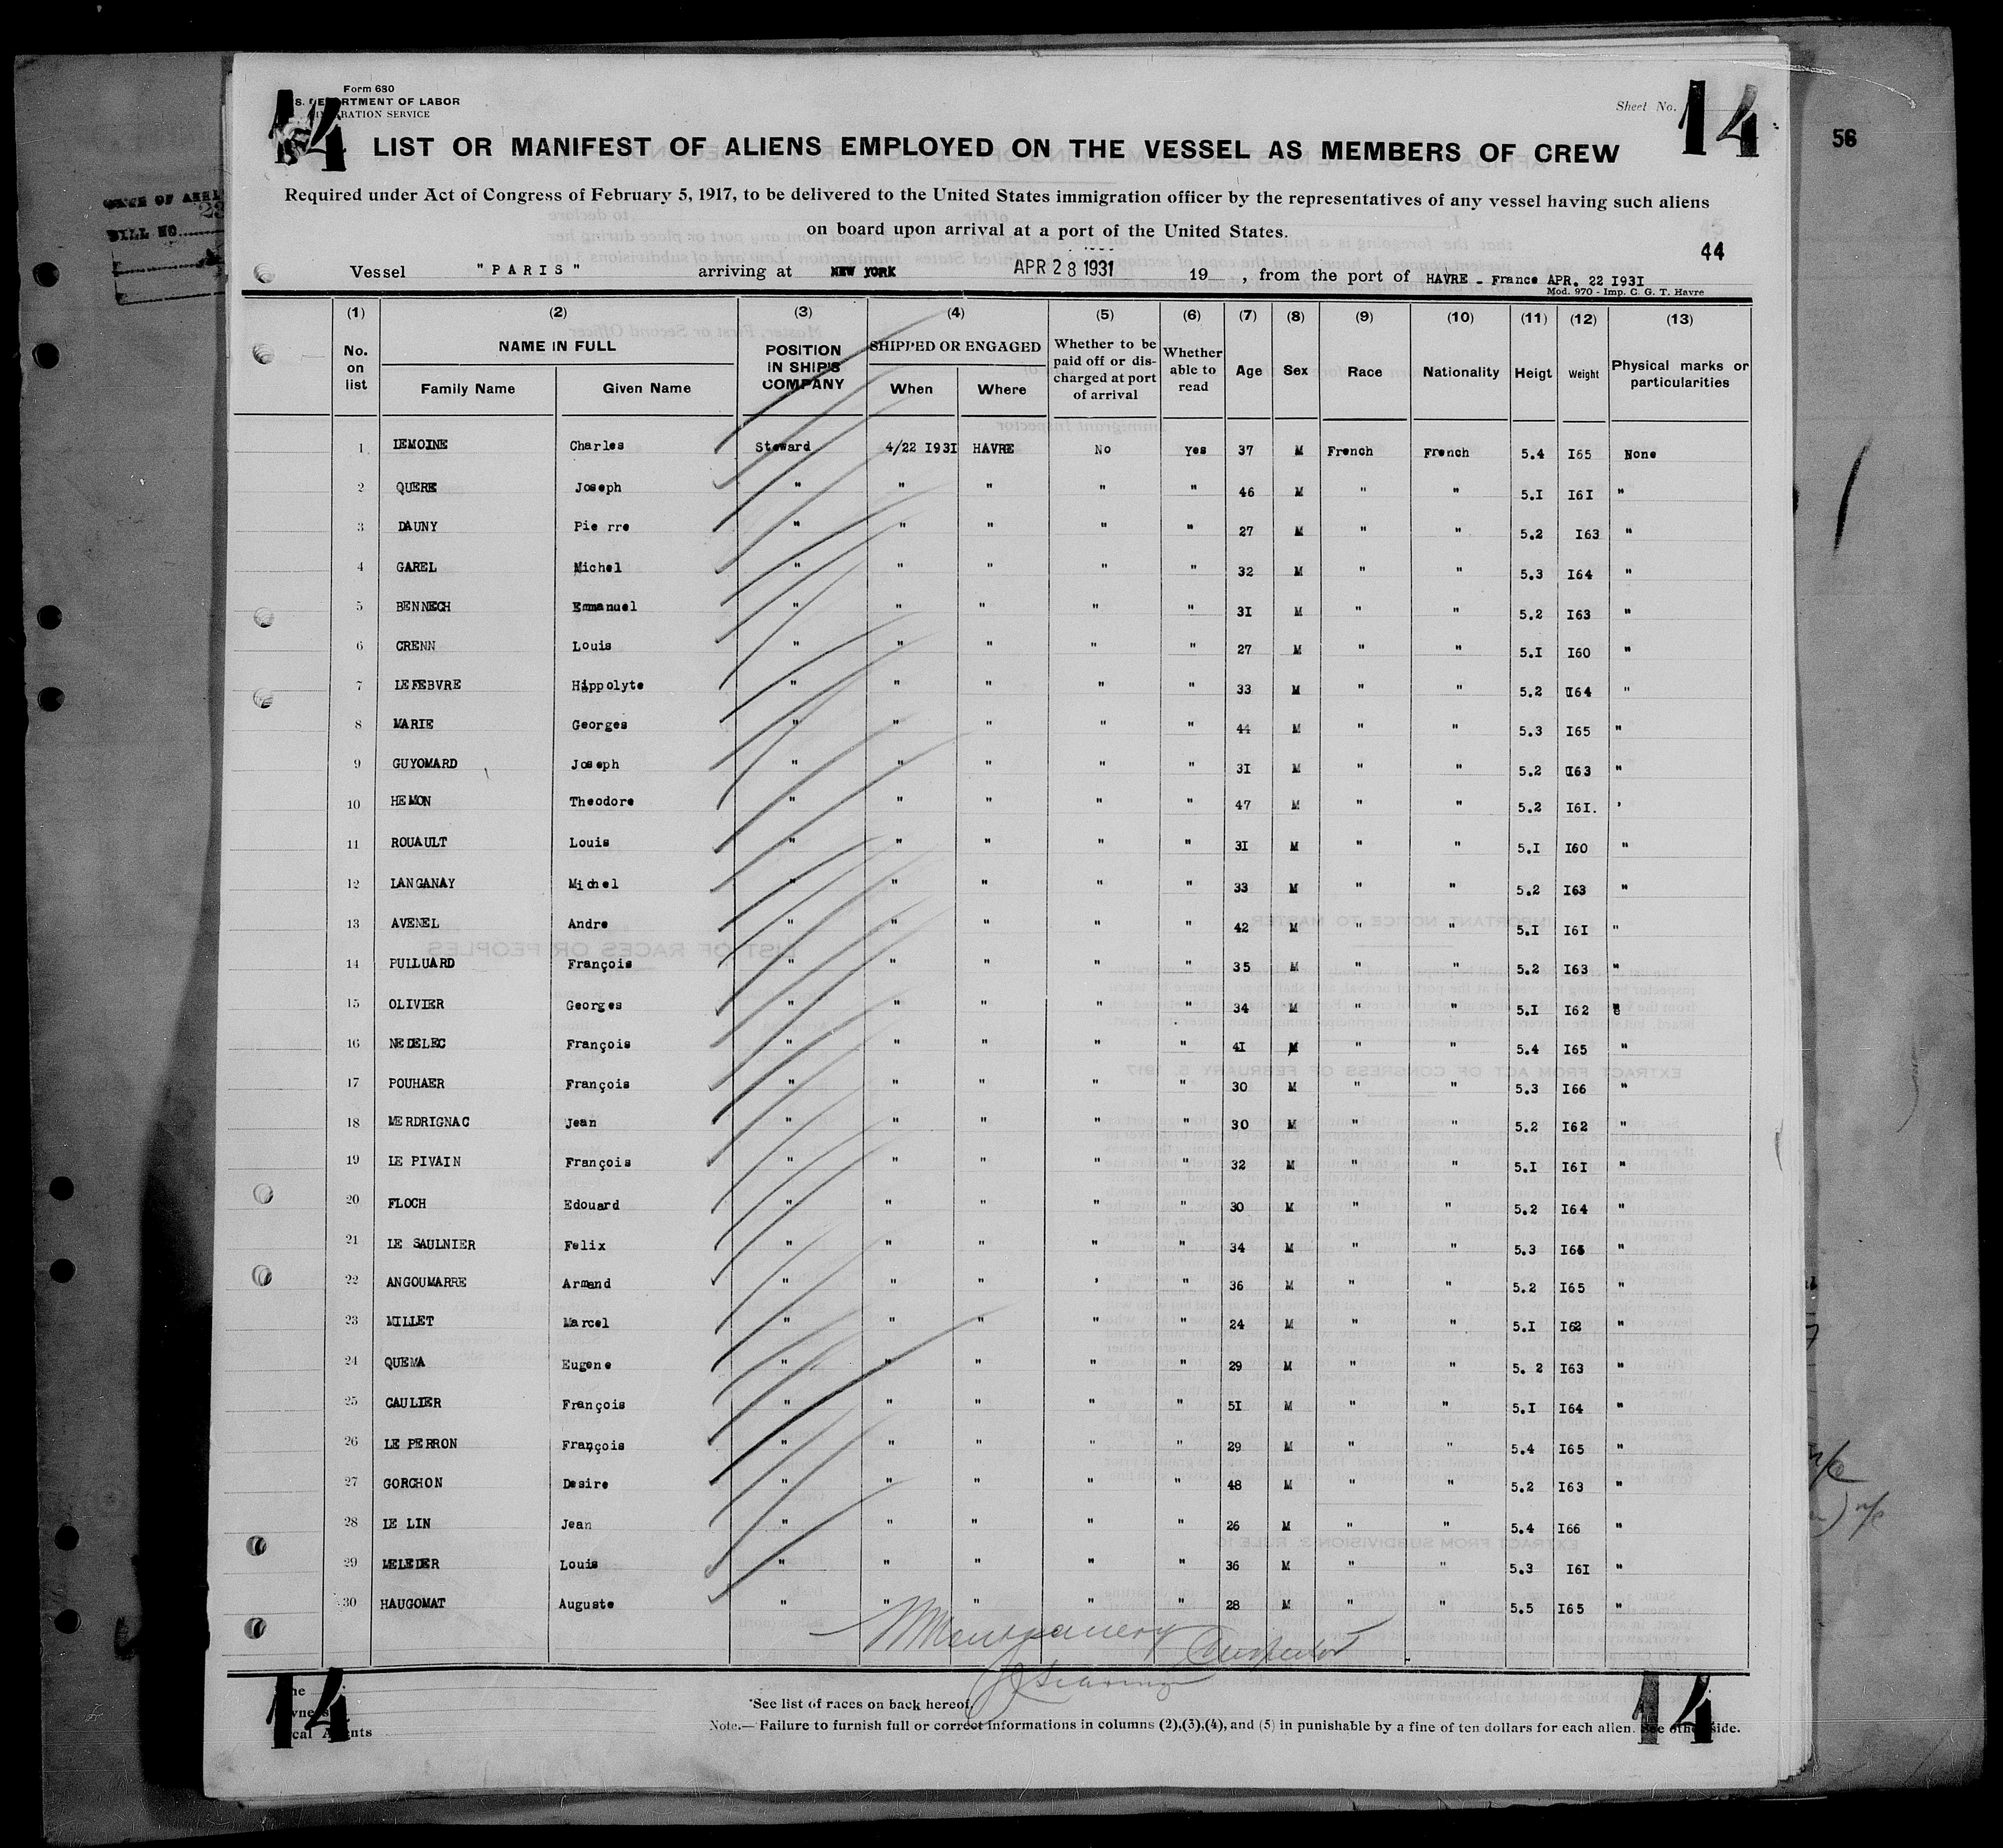 Form 680
S. DEPARTMENT OF LABOR
RATION SERVICE
Sheet No. 14
14
56
LIST OR MANIFEST OF ALIENS EMPLOYED ON THE VESSEL AS MEMBERS OF CREW
Required under Act of Congress of February 5, 1917, to be delivered to the United States immigration officer by the representatives of any vessel having such aliens
on board upon arrival at a port of the United States.
BILL NO
44
Vessel "PARIS" arriving at NEW YORK APR 28 1931 19 , from the port of HAVRE - France APR. 22 I93I
Mod. 970 - Imp. C. G. T. Havre
(1) (2) (3) (4) (5) (6) (7) (8) (9) (10) (11) (12) (13)
No. on list NAME IN FULL Family Name Given Name POSITION IN SHIP'S COMPANY SHIPPED OR ENGAGED When Where Whether to be paid off or discharged at port of arrival Whether able to read Age Sex Race Nationality Heigt Weight Physical marks or particularities
1 LEMOINE Charles Steward 4/22 I93I HAVRE No Yes 37 M French French 5.4 I65 None
2 QUERE Joseph " " " " " 46 M " " 5.I I6I "
3 DAUNY Pie rre " " " " " 27 M " " 5.2 I63 "
4 GAREL Michel " " " " " 32 M " " 5.3 I64 "
5 BENNECH Emmanuel " " " " " 3I M " " 5.2 I63 "
6 CRENN Louis " " " " " 27 M " " 5.I I60 "
7 LEFEBVRE Hippolyte " " " " " 33 M " " 5.2 I64 "
8 MARIE Georges " " " " " 44 M " " 5.3 I65 "
9 GUYOMARD Joseph " " " " " 3I M " " 5.2 I63 "
10 HEMON Theodore " " " " " 47 M " " 5.2 I6I. '
11 ROUAULT Louis " " " " " 3I M " " 5.I I60 "
12 LANGANAY Michel " " " " " 33 M " " 5.2 I63 "
13 AVENEL Andre " " " " " 42 M " " 5.I I6I "
14 PULLUARD François " " " " " 35 M " " 5.2 I63 "
15 OLIVIER Georges " " " " " 34 M " " 5.I I62 "
16 NEDELEC François " " " " " 4I M " " 5.4 I65 "
17 POUHAER François " " " " " 30 M " " 5.3 I66 "
18 MERDRIGNAC Jean " " " " " 30 M " " 5.2 I62 "
19 LE PIVAIN François " " " " " 32 M " " 5.I I6I "
20 FLOCH Edouard " " " " " 30 M " " 5.2 I64 "
21 LE SAULNIER Felix " " " " " 34 M " " 5.3 "
22 ANGOUMARRE Armand " " " ' " 36 M " " 5.2 I65 "
23 MILLET Marcel " " " " " 24 M " " 5.I I62 "
24 QUEMA Eugene " " " " " 29 M " " 5. 2 I63 "
25 CAULIER François " " " " " 5I M " " 5.I I64 "
26 LE PERRON François " " " " " 29 M " " 5.4 I65 "
27 GORCHON Desire " " " " " 48 M " " 5.2 I63 "
28 LE LIN Jean " " " " " 26 M " " 5.4 I66 "
29 MELEDER Louis " " " " " 36 M " " 5.3 I6I "
30 HAUGOMAT Auguste " " " " " 28 M " " 5.5 I65 "
Inspector
14
14
*See list of races on back hereof.
Note.— Failure to furnish full or correct informations in columns (2),(3),(4), and (5) in punishable by a fine of ten dollars for each alien. See other side.